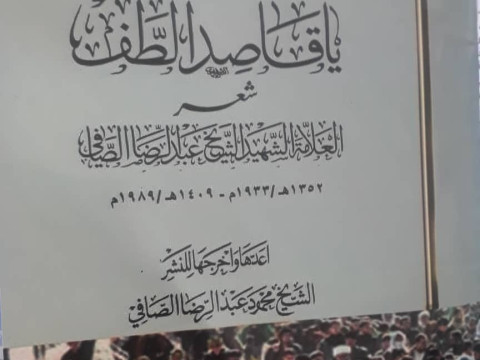 ياقاصد الطف
شعر
العلامة الشهيد الشيخ عبد الرضا الصافي
١٣٥٢هـ/١٩٣٣م - ١٤٠٩هـ/١٩٨٩م
اعدها واخرجها للنشر
الشيخ محمود عبد الرضا الصافي